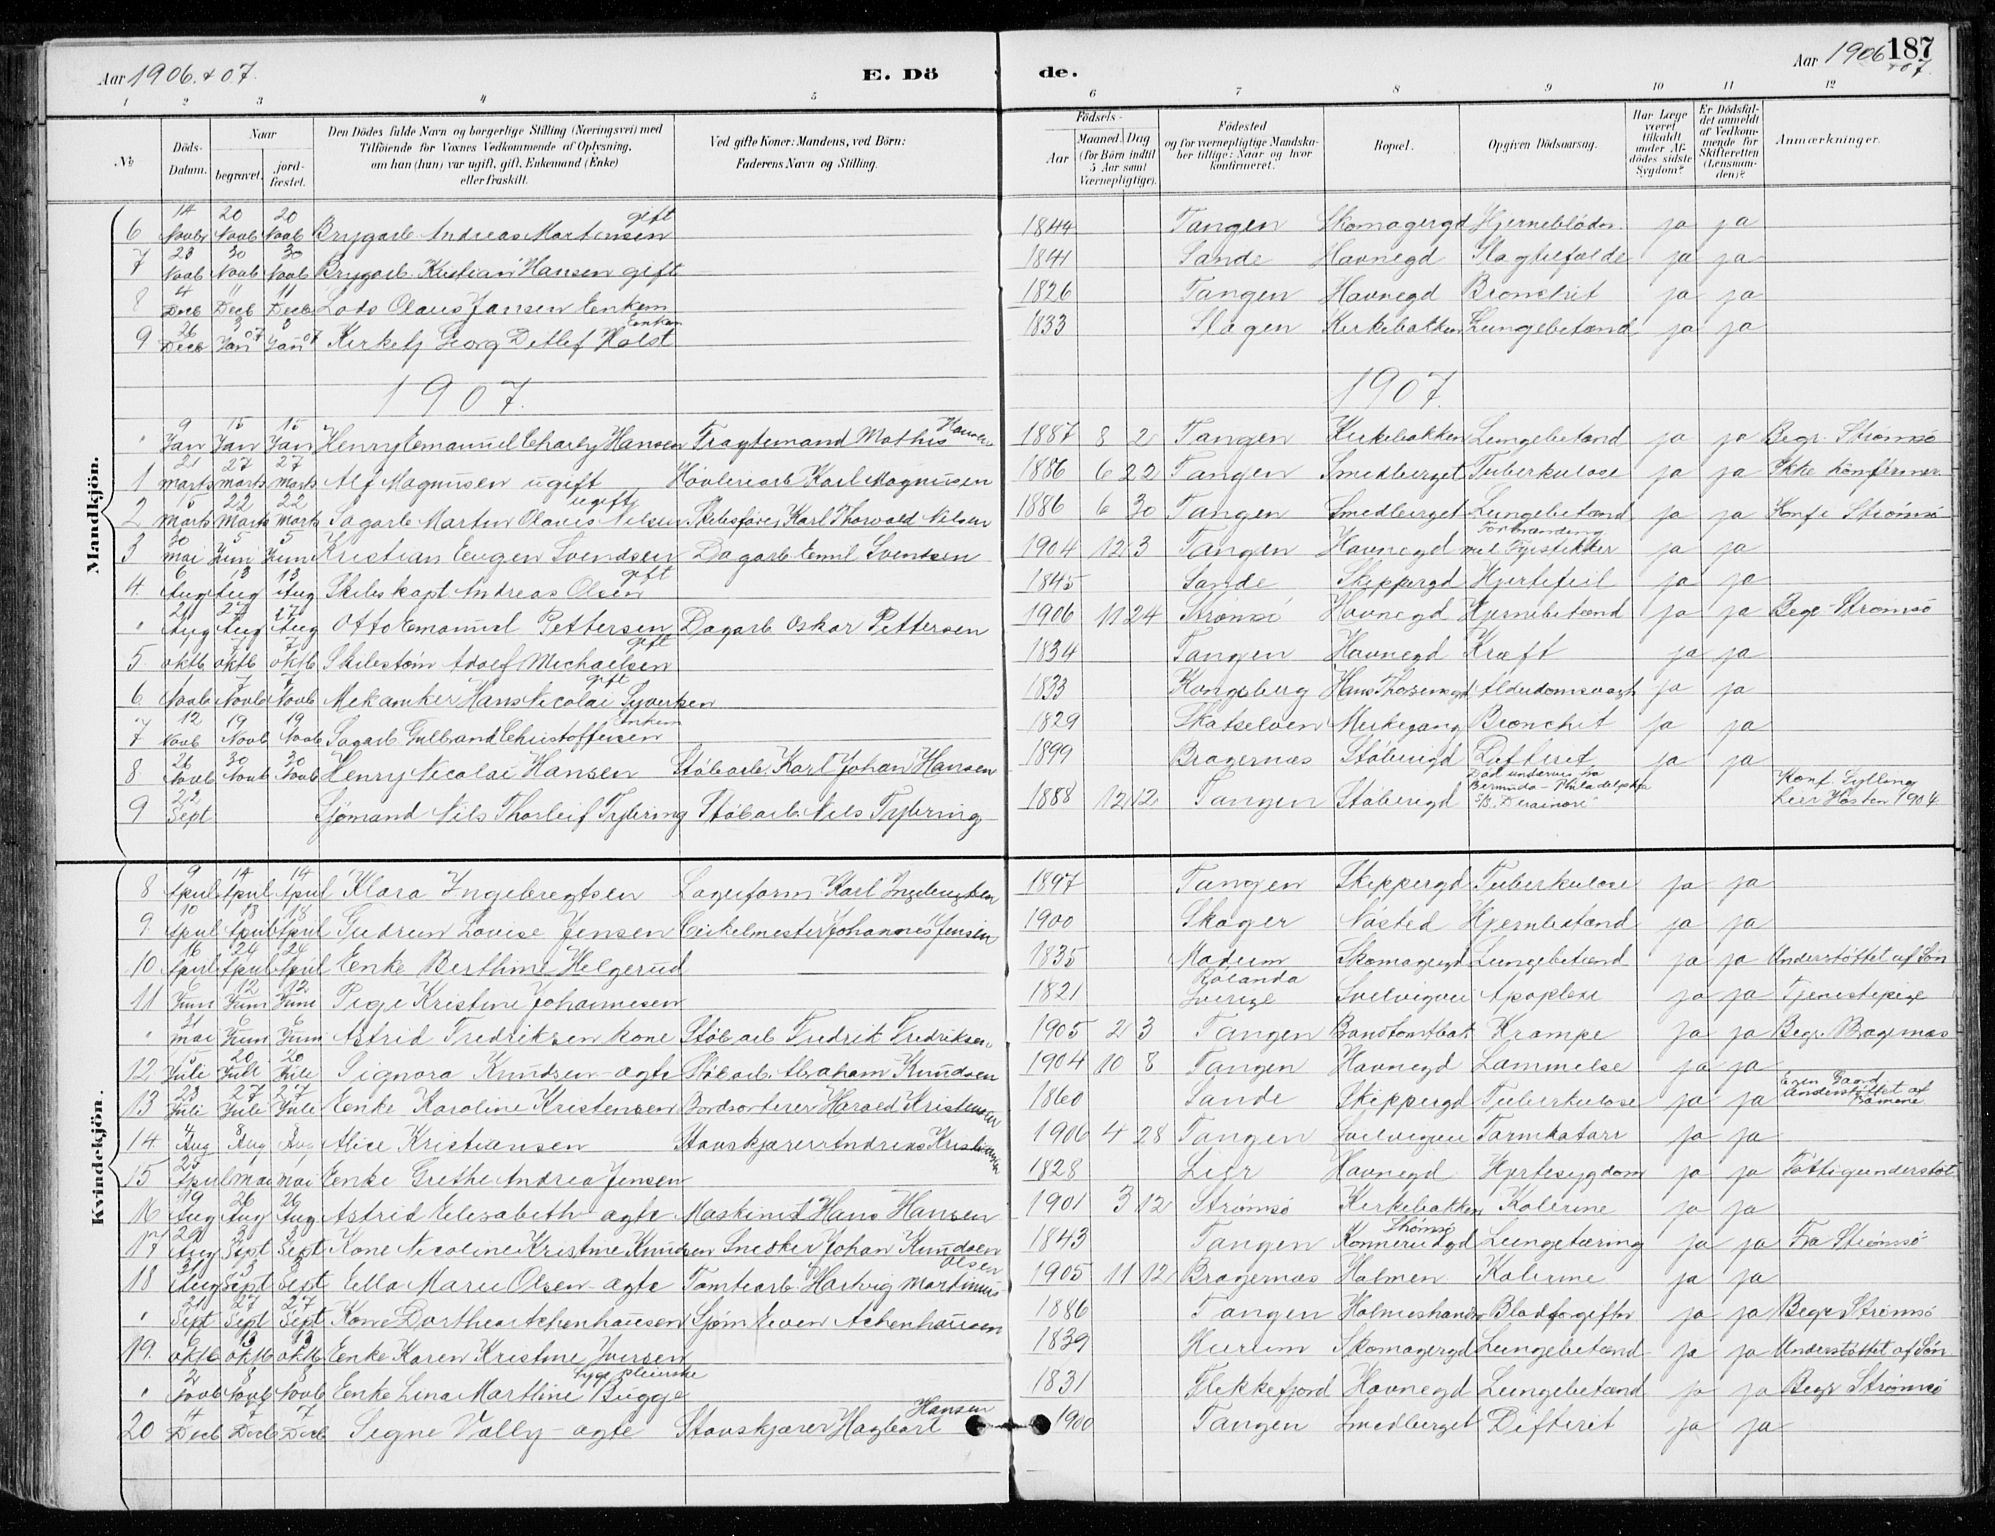 Aar 1906 & 07.
E. Dö
de.
Aar 1906 & 07.
187
1 2 3 4 5 6 7 8 9 10 11 12
№
Döds-Datum.
Naar
begravet.
jord-fæstet.
Den Dödes fulde Navn og borgerlige Stilling (Næringsvei) med Tilföiende for Voxnes Vedkommende af Oplysning, om han (hun) var ugift, gift, Enkemand (Enke) eller fraskilt.
Ved gifte Koner: Mandens, ved Börn: Faderens Navn og Stilling.
Födsels-
Aar
Maaned. Dag
(for Börn indtil 5 Aar samt Værnepligtige).
Födested og for værnepligtige Mandska-ber tillige: Naar og hvor konfirmeret.
Bopæl.
Opgiven Dödsaarsag.
Har Læge været tilkaldt under Af-dödes sidste Sygdom?
Er Dödsfal-det anmeldt af Vedkom-mende for Skifteretten (Lensman-den)?
Anmærkninger.
Mandkjön.
6 14 Novbr 20 Novb 20 Novb Brygarb. Andreas Martensen gift 1844 Tangen Skomagergd Hjerneblödn. ja ja
7 23 Novb 30 Novb 30 Novb Brygarb. Kristian Hansen gift 1841 Sande Havnegd Slagtilfælde ja ja
8 4 Decb 11 Decb 11 Decb Lods Olaus Jansen Enkem 1826 Tangen Havnegd Bronchit ja ja
9 26 Decb 3 Jan 07 3 Jan 07 Kirketj Georg Ditlef Holst Enkem 1833 Slagen Kirkebakken Lungebetænd ja ja
1907. 1907.
" 9 Jan 15 Jan 15 Jan Henry Emanuel Charly Hansen Fragtemand Mathis Hansen 1887 8 2 Tangen Kirkebakken Lungebetænd ja ja Begr. Strømsö
1 21 marts 27 marts 27 marts Alf Magnusen ugift Høvleriarb Karl Magnusen 1886 6 22 Tangen Smedberget Tuberkulose ja ja Ikke konfirmer
2 15 Marts 22 Marts 22 Marts Sagarb Martin Olavis Nilsen ugift Skibsfører Karl Thorvald Nilsen 1886 6 30 Tangen Smedberget Lungebetænd ja ja Konf i Strömsö
3 30 mai 5 Juni 5 Juni Kristian Eugen Svendsen Dagarb Emil Svendsen 1904 12 3 Tangen Havnegd Forbrænding med Fyrstikker ja ja
4 6 Aug 13 Aug 13 Aug Skibskapt. Andreas Olsen gift 1845 Sande Skippergd Hjertefeil ja ja
" 21 Aug 27 Aug 27 Aug Otto Emanuel Pettersen Dagarb Oskar Pettersen 1906 11 24 Strömsö Havnegd Hjernebetænd ja ja Begr Strömsö
5 oktb 7 oktb 7 oktb Skibstöm Adolf Michaelsen gift 1834 Tangen Havnegd Kræft ja ja
6 Novb 7 Novb 7 Novb Mekaniker Hans Nicolai Syvertsen gift 1833 Kongsberg Hans Thosensgd Alderdomsvagh ja ja
7 12 Novb 19 Novb 19 Novb Sagarb Gulbrand Christoffersen Enkem 1829 Skotselven Merkegang Bronchit ja ja
8 26 Novb 30 Novb 30 Novb Henry Nicolai Hansen Stöbarb. Karl Johan Hansen 1899 Bragernæs Stöberigd Difterit ja ja
9 22 Sept Sjömand Nils Thorleif Tybring Stöbarb. Nils Tybring 1888 12 12 Tangen Stöberigd Död underveis fra Bermuda - Philadelphia Konf Sylling Lier Høsten 1904
Kvindekjön.
8 9 April 14 April 14 April Klara Ingebregtsen Lagerform Karl Ingebregtsen 1897 Tangen Skippergd Tuberkulose ja ja
9 10 April 18 April 18 April Gudrun Lovise Jensen Cirkelmester Johannes Jensen 1900 Skoger Nösted Hjernbetænd ja ja
10 16 April 24 April 24 April Enke Berthine Helgerud 1835 Modum Skomagergd Lungebetænd ja ja Understöttet af Sön
11 6 Juni 12 Juni 12 Juni Pige Kristine Johannesen 1821 Rölanda Sverige Svelvigvei Apoplexi ja ja Tjenestepige
" 31 mai 6 Juni 6 Juni Astrid Fredriksen Stöbarb Fredrik Fredriksen 1905 2 3 Tangen Krampe ja ja Begr. Bragernæs
12 15 Juli 20 Juli 20 Juli Signora Knudsen - ægte Stöbarb. Abraham Knudsen 1904 10 8 Tangen Havnegd Lammelse ja ja
13 23 Juli 27 Juli 27 Juli Enke Karoline Kristensen Bordsorterer Harald Kristensen 1860 Sande Skippergd Tuberkulose ja ja Egen Gaard Understöttet af Börnene
14 4 Aug 8 Aug 8 Aug Alice Kristiansen Stavskjærer Andreas Kristiansen 1906 4 28 Tangen Svelvigvei Tarmkatarr ja ja
15 25 April 1 mai 1 mai Enke Grethe Andrea Jensen 1828 Lier Havnegd Hjertesygdom ja ja Fattigunderstöt
16 19 Aug 26 Aug 26 Aug Astrid Elisabeth - ægte Maskinist Hans Hansen 1901 3 12 Strømsö Kirkebakken Kolerine ja ja
17 29 Aug 3 Sept 3 Sept Kone Nicoline Kristine Knudsen Snedker Johan Knudsen 1843 Tangen Strömsö Konnerudgd Lungetæring ja ja Fra Strømsö
18 31 Aug 3 Sept 3 Sept Ella Marie Olsen - ægte Tomtearb Hartvig Martinius Olsen 1905 11 12 Bragernæs Holmen Kolerine ja ja
" 21 Sept 27 Sept 27 Sept Kone Dorthea Achenhausen Sjöm Even Achenhausen 1886 Tangen Blodforgiftn ja ja Begr Strömsö
19. 6 oktb 13 oktb 13 oktb Enke Karen Kristine Iversen 1839 Hurum Skomagergd Lungebetænd ja ja Understöttet af Sön
" 2 Novb 8 Novb 8 Novb Enke Lina Marthine Bugge Sygepleierske 1831 Flekkefjord Havnegd Lungebetænd ja ja Begr Strömsö
20 4 Decb 7 Decb 7 Decb Signe Vally - ægte Stavskjærer Hagbart Hansen 1900 Tangen Smedberget Difterit ja ja